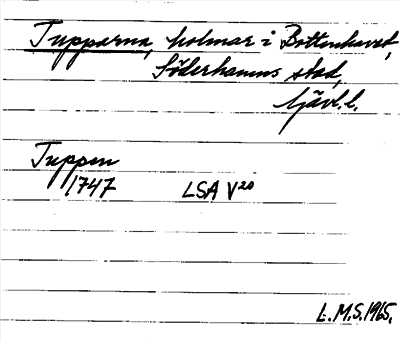 Tupparna, holmar i Bottenhavet,
Söderhamns stad,
Gävl. l.
Tuppen
1747 LSA V20
L.M.S. 1965.